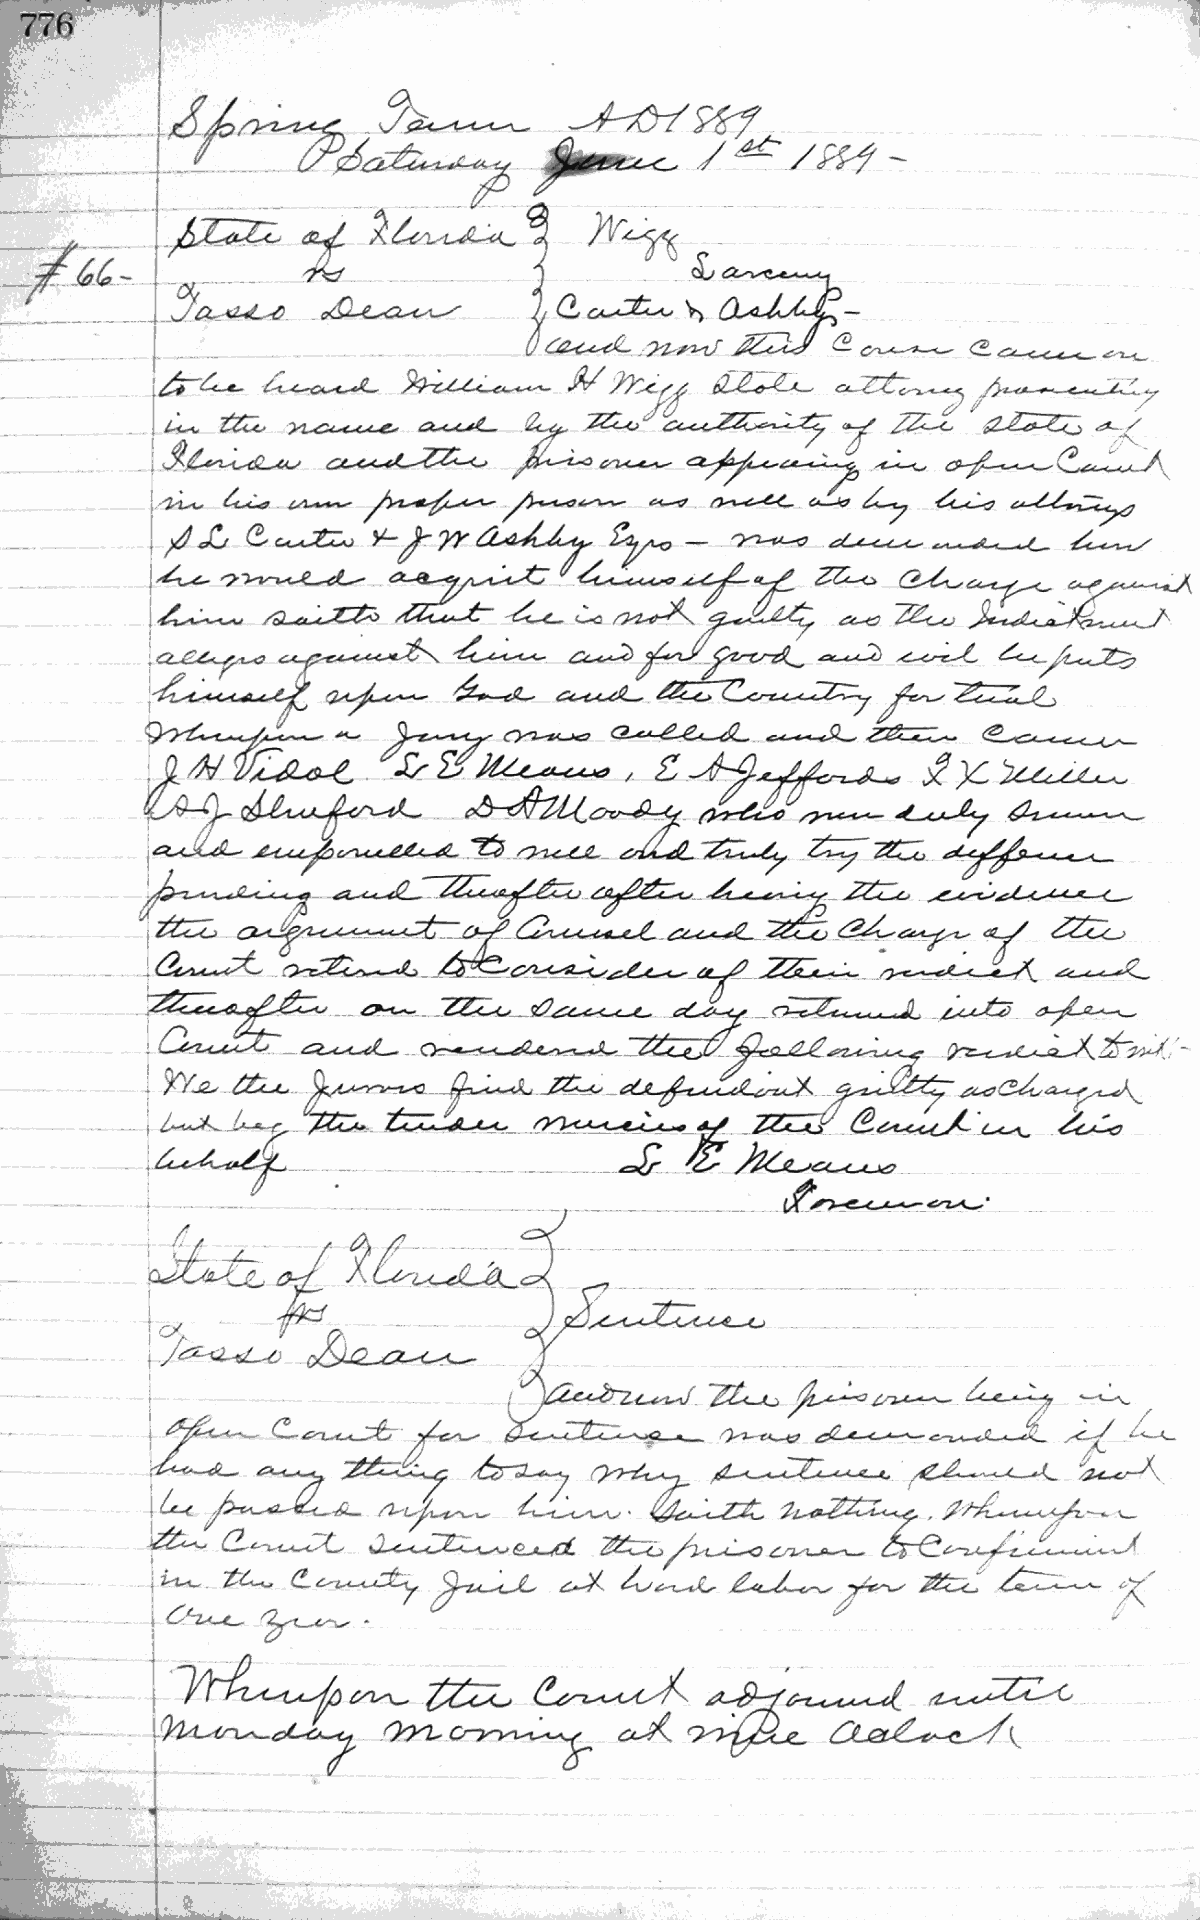 776
Spring Term AD 1889
Saturday June 1st 1889 -
State of Florida } Wigg
#66- vs } Larceny
Tasso Dean } Carter & Ashby -
and now this Cause came on
to be heard William H Wigg State attorney prosecuting
in the name and by the authority of the State of
Florida and the prisoner appearing in open Court
in his own proper person as well as by his attorneys
S L Carter & J W Ashby Esqrs - was demanded how
he would acquit himself of the Charge against
him saith that he is not guilty as the Indictment
alleges against him and for good and evil he puts
himself upon God and the Country for trial
Whereupon a Jury was called and then came
J H Vidal L E Means, E A Jeffords F X Miller
A J Shuford D A Moody who were duly sworn
and empanelled to well and truly try the difference
pending and thereafter after hearing the evidence
the argument of Counsel and the Charge of the
Court retired to Consider of their verdict and
thereafter on the same day returned into open
Court and rendered the following verdict to wit:-
We the Jurors find the defendant guilty as Charged
but beg the tender mercies of the Court in his
behalf L E Means
Foreman.
State of Florida }
vs } Sentence
Tasso Dean }
and now the prisoner being in
open Court for sentence was demanded if he
had any thing to say why sentence should not
be passed upon him. Saith nothing. Whereupon
the Court sentenced the prisoner to Confinement
in the County Jail at hard labor for the term of
One year.
Whereupon the Court adjourned until
Monday morning at nine Oclock